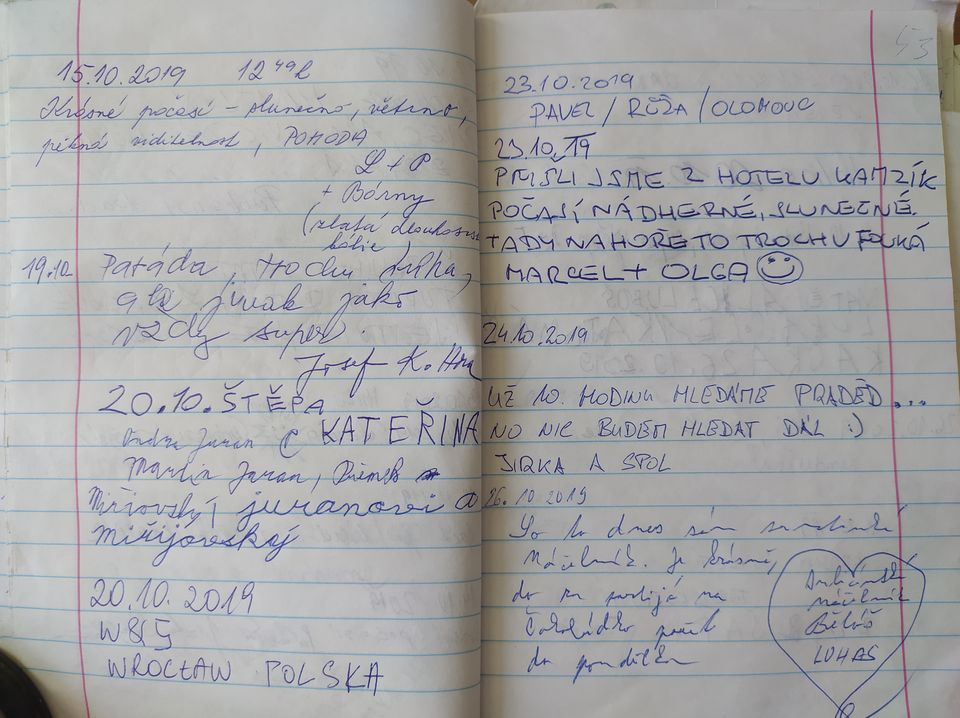 15.10.2019 12 49h
Krásné počasí - slunečno, větrno,
pěkná viditelnost, POHODA
L + P
+ Bárny
(zlatá
19.10. Paráda, trochu
ale jinak jako
vždy super.
Josef K.
20.10. ŠTĚPA
Juran KATEŘINA
Martin Juran,
juranovi a
miřijovskýj
20.10.2019
W&G
WROCŁAW POLSKA
53
23.10.2019
PAVEL / RŮŽA / OLOMOUC
23.10.19
PŘIŠLI JSME Z HOTELU KAMZÍK
POČASÍ NÁDHERNÉ, SLUNEČNÉ.
TADY NAHOŘE TO TROCHU FOUKÁ
MARCEL + OLGA
24.10.2019
UŽ 10. HODINU HLEDÁME PRADĚD...
NO NIC BUDEM HLEDAT DÁL :)
JIRKA A SPOL
26.10 2019
to dnes
Náčelník. Je krásně,
do
do pondělka
náčelník
LUKAS